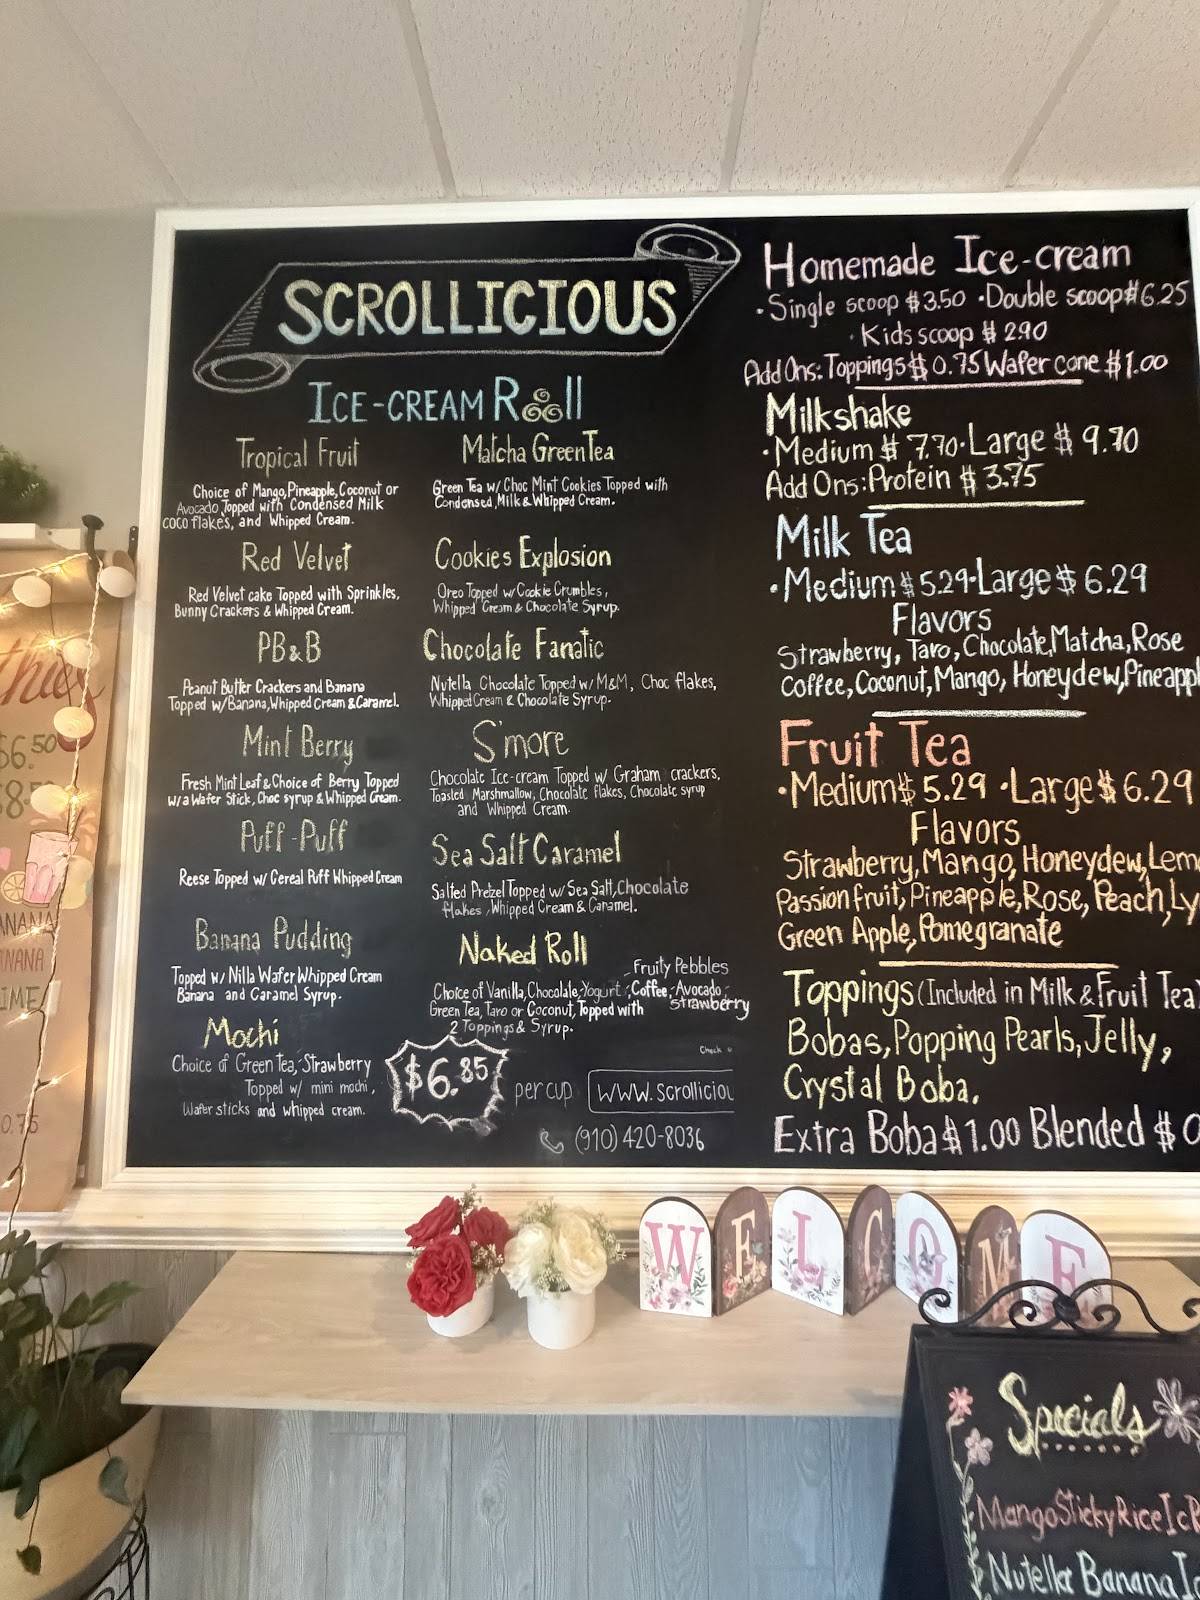 SCROLLICIOUS
ICE-CREAM Roll
Tropical Fruit
Choice of Mango, Pineapple, Coconut or
Avocado Topped with Condensed Milk
coco flakes, and Whipped Cream.
Red Velvet
Red Velvet cake Topped with Sprinkles,
Bunny Crackers & Whipped Cream.
PB&B
Peanut Butter Crackers and Banana
Topped w/Banana, Whipped Cream & Caramel.
Mint Berry
Fresh Mint Leaf & Choice of Berry Topped
w/a Wafer Stick, Choc syrup & Whipped Cream.
Puff-Puff
Reese Topped w/ Cereal Puff Whipped Cream
Banana Pudding
Topped w/ Nilla Wafer Whipped Cream
Banana and Caramel Syrup.
Mochi
Choice of Green Tea, Strawberry
Topped w/ mini mochi,
Wafer sticks and whipped cream.
Matcha Green Tea
Green Tea w/ Choc Mint Cookies Topped with
Condensed, Milk & Whipped Cream.
Cookies Explosion
Oreo Topped w/Cookie Crumbles,
Whipped Cream & Chocolate Syrup.
Chocolate Fanatic
Nutella Chocolate Topped w/ M&M, Choc flakes,
Whipped Cream & Chocolate Syrup.
S'more
Chocolate Ice-cream Topped w/ Graham crackers,
Toasted Marshmallow, Chocolate flakes, Chocolate syrup
and Whipped Cream.
Sea Salt Caramel
Salted Pretzel Topped w/ Sea Salt, Chocolate
flakes, Whipped Cream & Caramel.
Naked Roll
Fruity Pebbles
Choice of Vanilla, Chocolate, Yogurt, Coffee, Avocado,
Green Tea, Taro or Coconut, Topped with strawberry
2 Toppings & Syrup.
$6.85 per cup
Check
www.scrolliciou
(910) 420-8036
Homemade Ice-cream
·Single scoop $3.50 ·Double scoop $6.25
·Kids scoop $2.90
Add Ons: Toppings $0.75 Wafer cone $1.00
Milkshake
·Medium $7.70 ·Large $9.70
Add Ons: Protein $3.75
Milk Tea
·Medium $5.29 ·Large $6.29
Flavors
Strawberry, Taro, Chocolate, Matcha, Rose
Coffee, Coconut, Mango, Honeydew, Pineapp
Fruit Tea
·Medium $5.29 ·Large $6.29
Flavors
Strawberry, Mango, Honeydew, Lem
Passion fruit, Pineapple, Rose, Peach, Ly
Green Apple, Pomegranate
Toppings (Included in Milk & Fruit Tea)
Bobas, Popping Pearls, Jelly,
Crystal Boba.
Extra Boba $1.00 Blended $0
$6.50
$8.5
ANANA
NANA
IME
0.75
WELCOME
Specials
Mango Sticky Rice Ic
Nutella Banana Ic